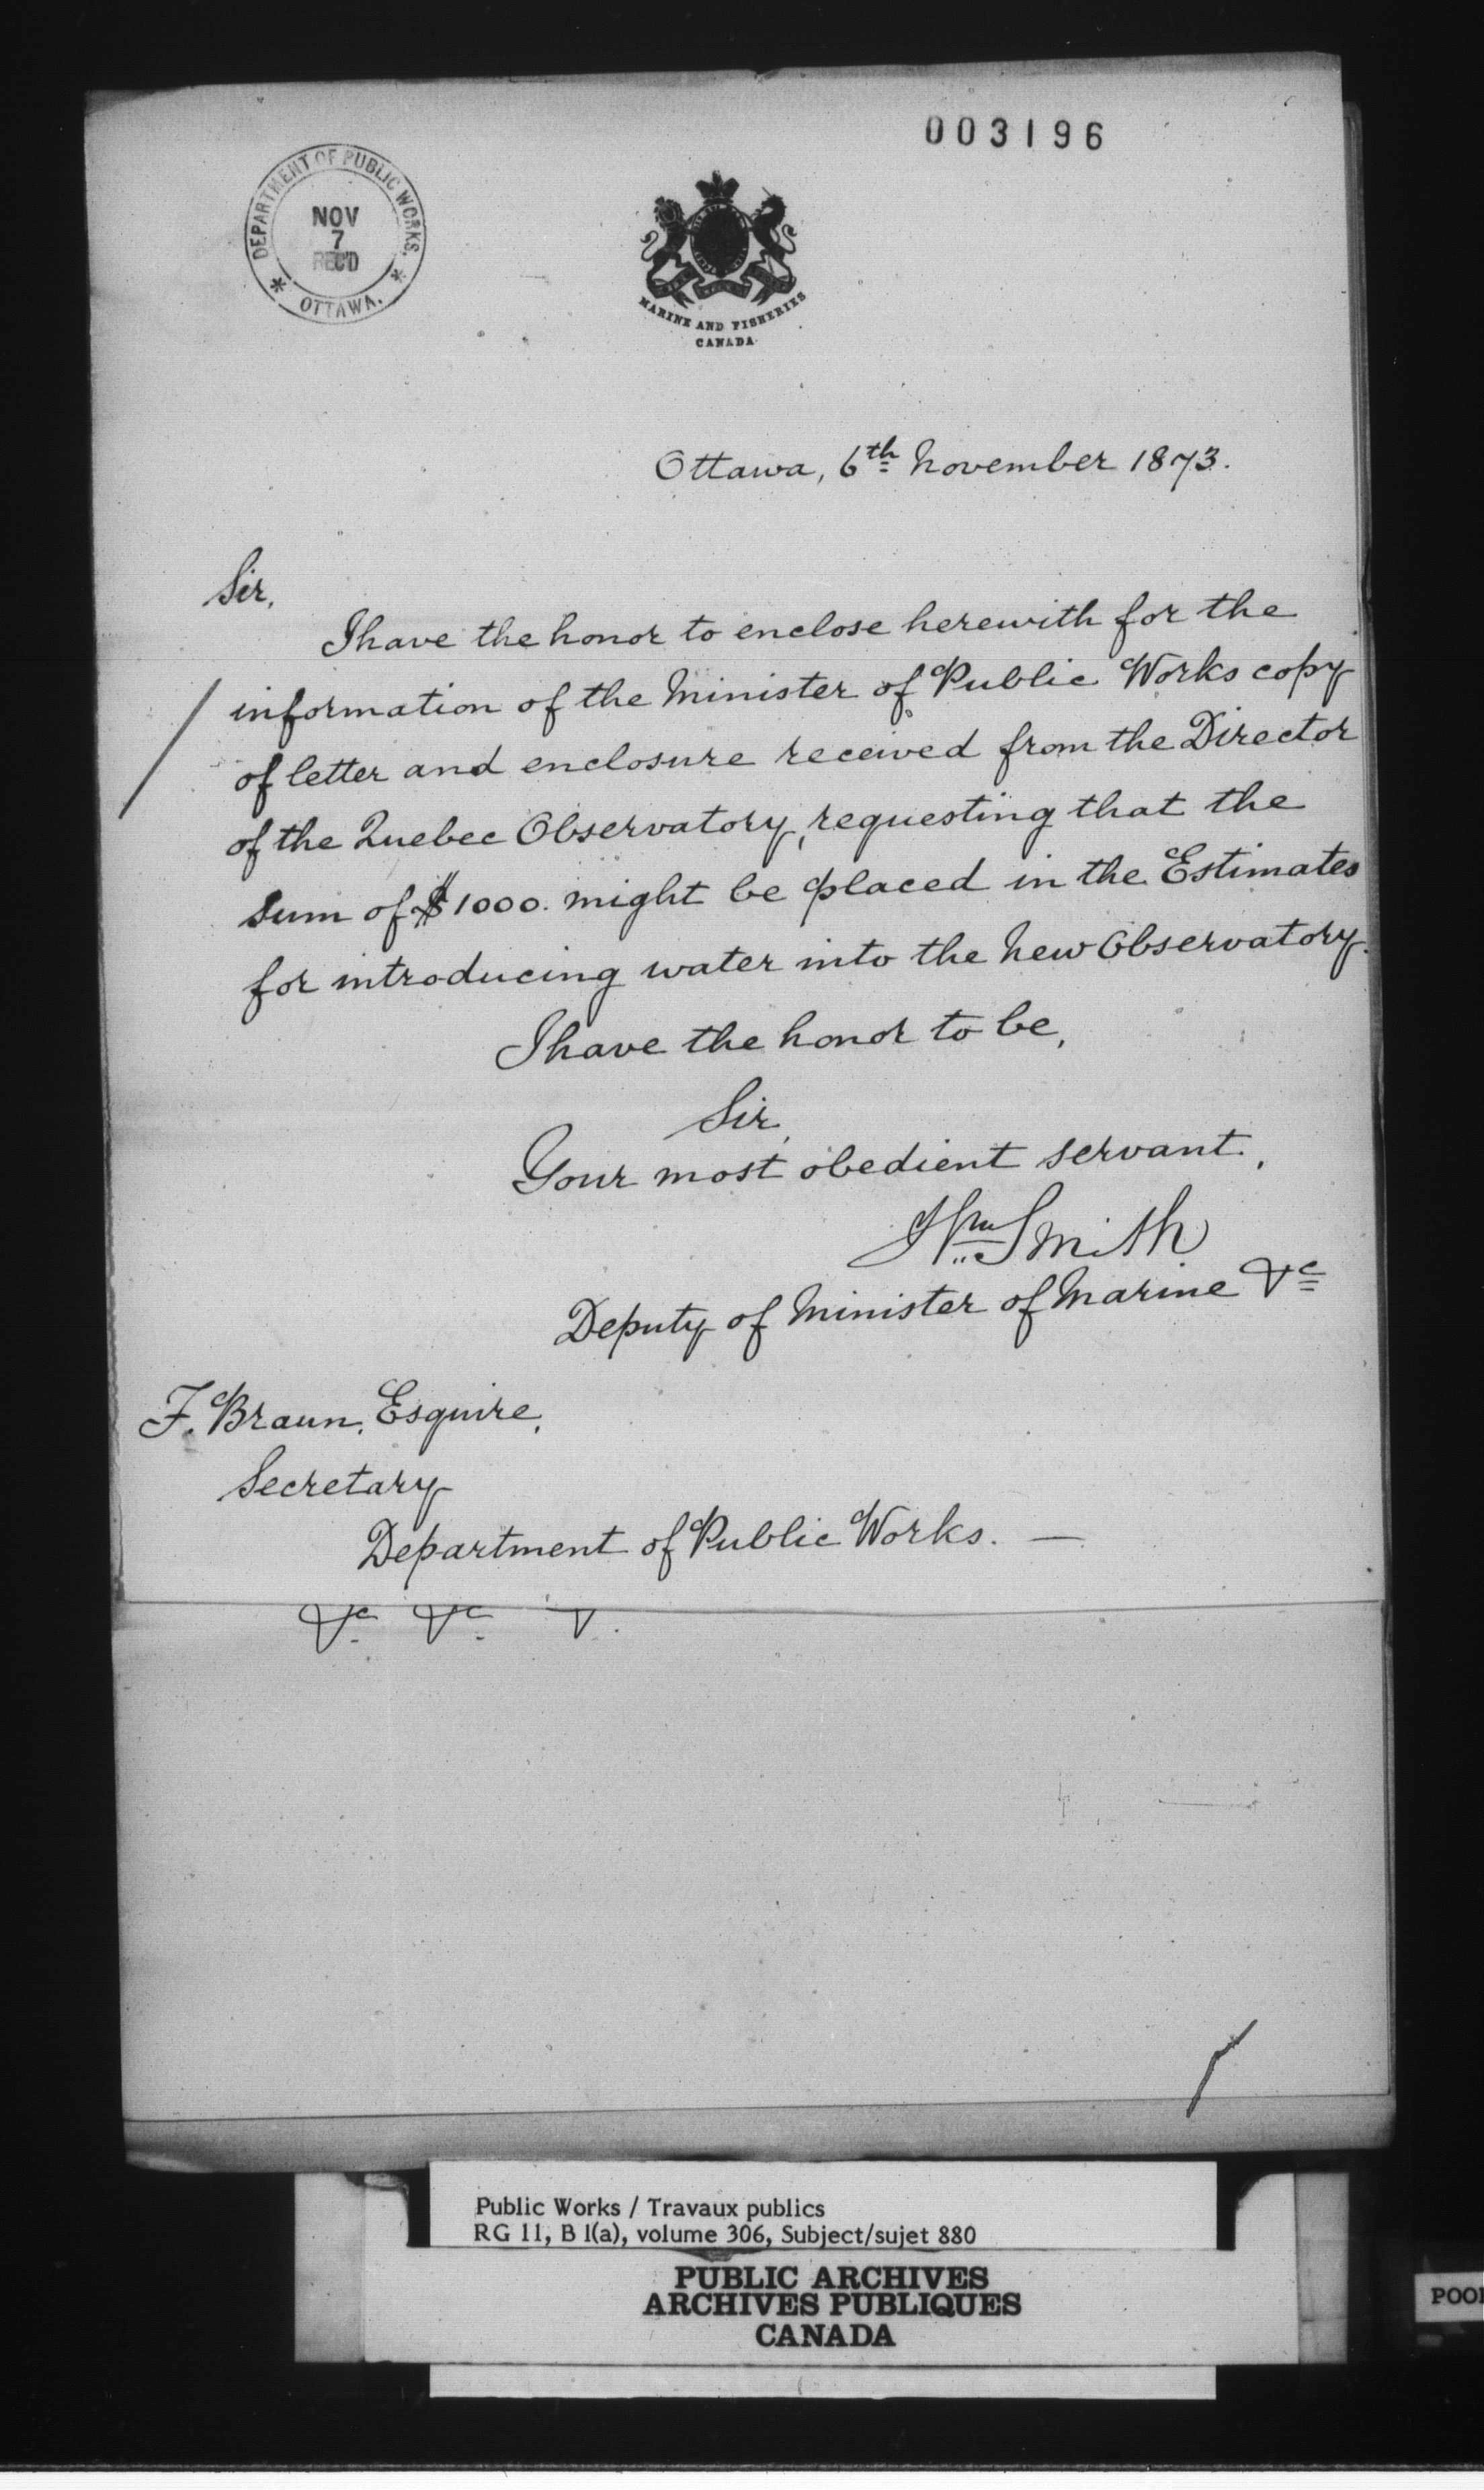 003196
DEPARTMENT OF PUBLIC WORKS.
NOV
7
REC'D
* OTTAWA. *
MARINE AND FISHERIES
CANADA
Ottawa, 6th November 1873.
Sir,
I have the honor to enclose herewith for the
information of the Minister of Public Works copy
of letter and enclosure received from the Director
of the Quebec Observatory, requesting that the
sum of $1000. might be placed in the Estimates
for introducing water into the New Observatory.
I have the honor to be,
Sir,
Your most obedient servant,
Wm Smith
Deputy of Minister of Marine &c
F. Braun, Esquire,
Secretary
Department of Public Works. —
&c. &c. &.
Public Works / Travaux publics
RG 11, B 1(a), volume 306, Subject/sujet 880
PUBLIC ARCHIVES
ARCHIVES PUBLIQUES
CANADA